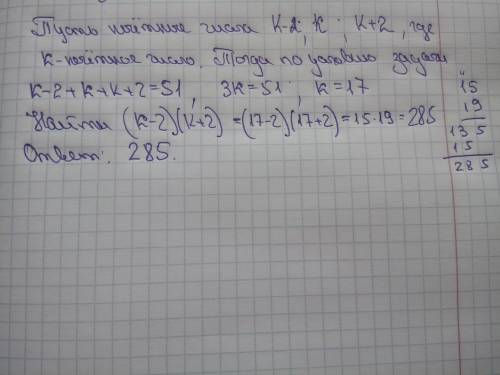 Пусть нечётные числа к-2; к; к+2, где
к-нечётное число. Тогда по условию задачи
к-2+к+к+2=51, 3к=51; к=17
Найти (к-2)(к+2)=(17-2)(17+2)=15·19=285
Ответ: 285.
15
19
135
15
285